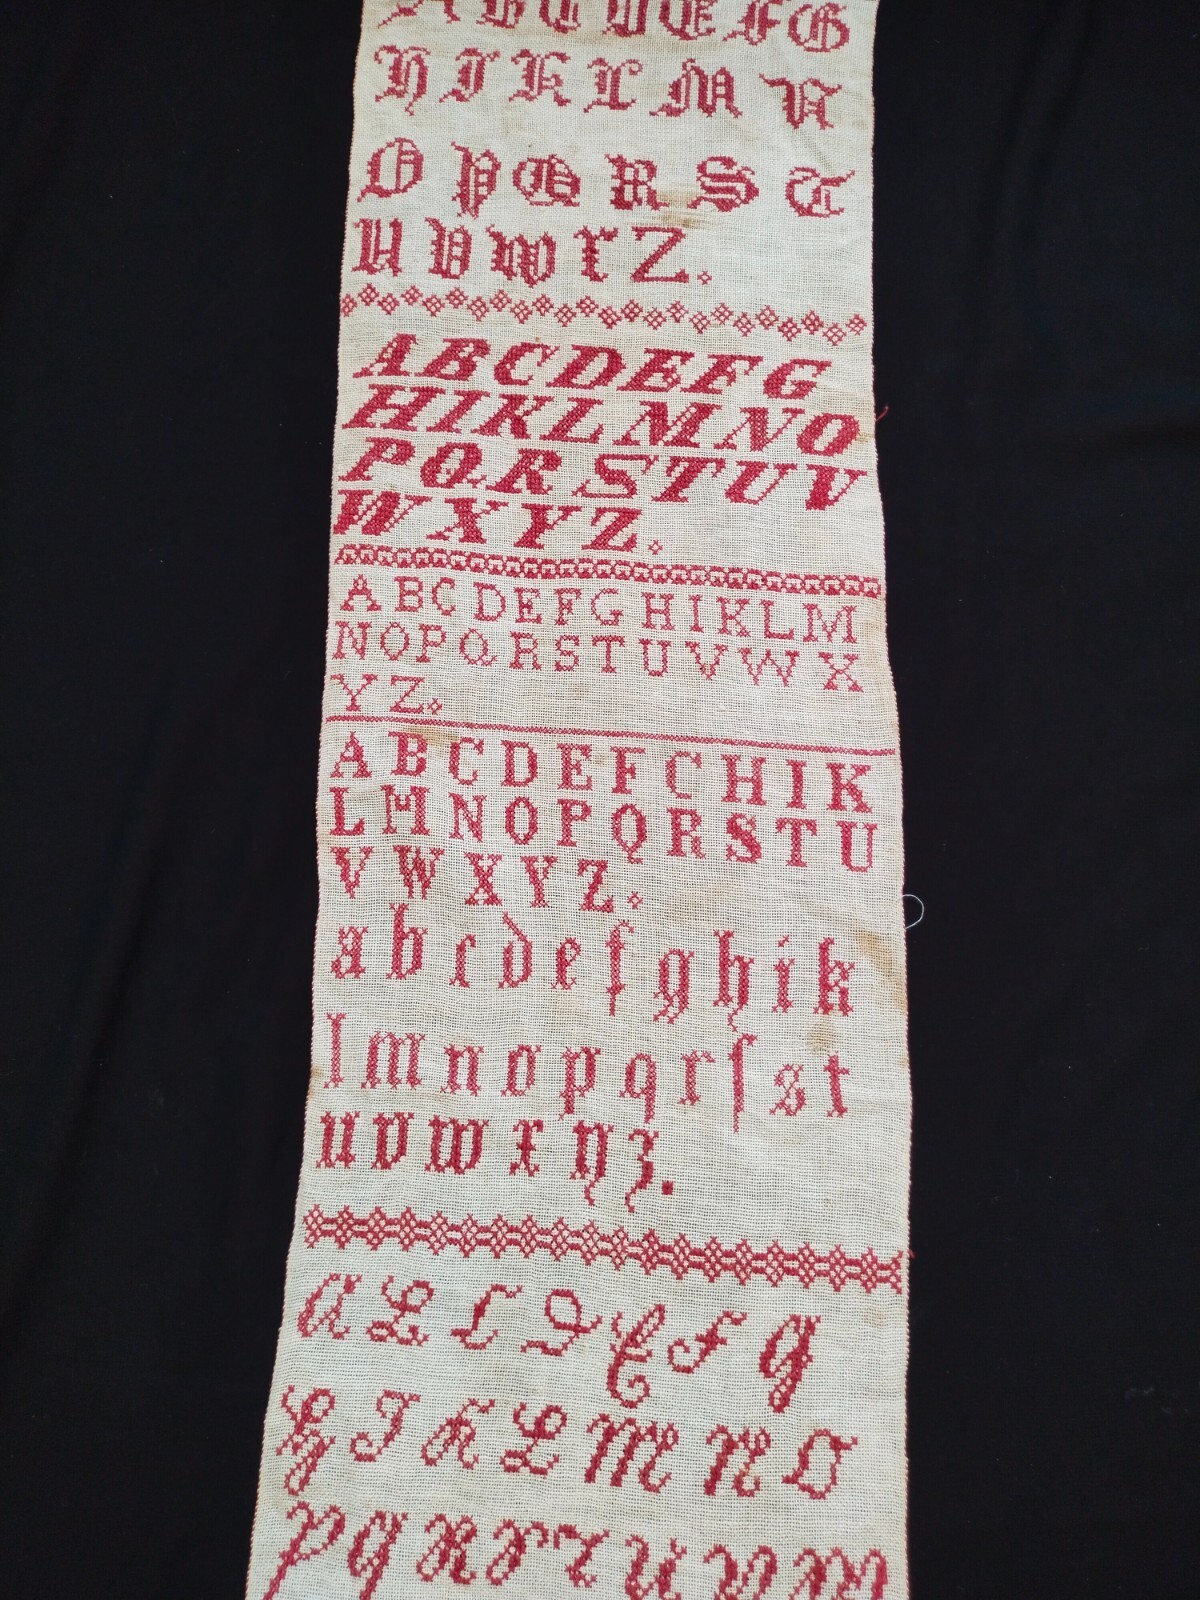 A B C D E F G
H I K L M N
O P Q R S T
U V W X Z.
A B C D E F G
H I K L M N O
P Q R S T U V
W X Y Z.
A B C D E F G H I K L M
N O P Q R S T U V W X
Y Z.
A B C D E F C H I K
L M N O P Q R S T U
V W X Y Z.
a b c d e f g h i k
l m n o p q r ſ s t
u v w x y z.
A B C D E F G
H I K L M N O
P Q R S T U V W